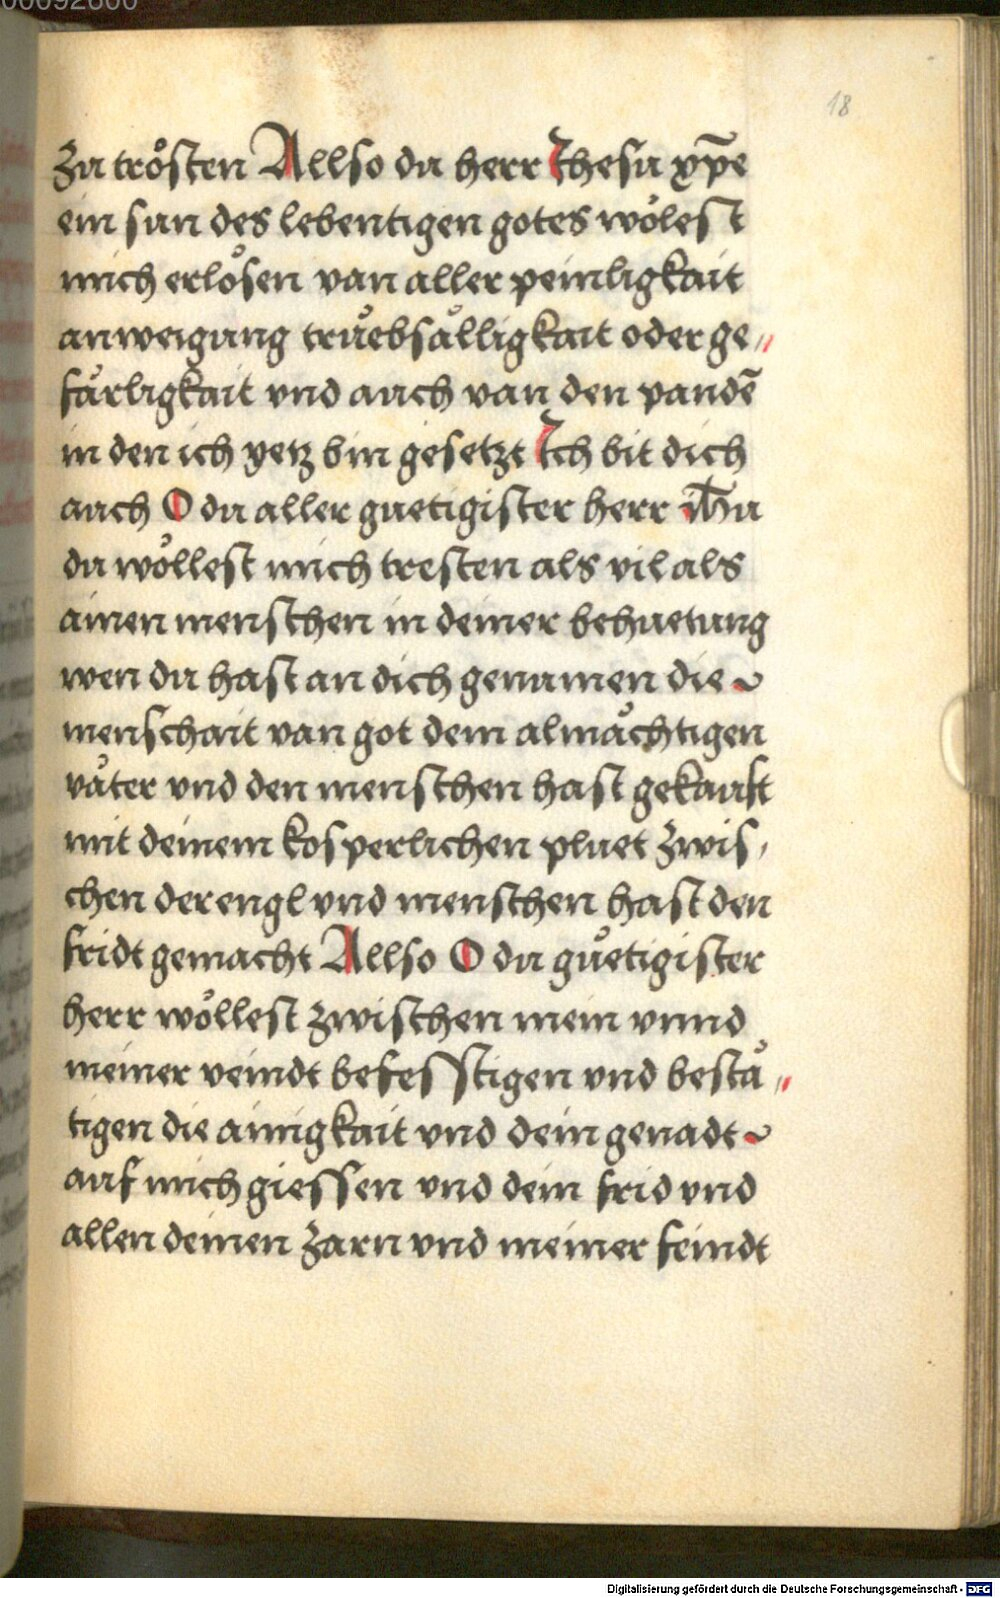 00092600
18
Zu trösten Allso du herr Jhesu xp̄e
ein sun des lebentigen gotes wölest
mich erlösen van aller peinligkait
anweigung trüebsälligkait oder ge„
färligkait vnd auch van den pandē
in den ich yetz bin gesetzt Ich bit dich
auch O du aller guetigister herr ih̄u
du wöllest mich tresten als vil als
ainen menschen in deiner behuetung
wen du hast an dich genumen die
menschait van got dem almächtigen
väter vnd den menschen hast gekauft
mit deinem kosperlichen pluet zwis,
chen der engl vnd menschen hast den
fridt gemacht Allso O du güetigister
herr wöllest zwischen mein vnnd
meiner veindt befesstigen vnd bestä„
tigen die ainigkait vnd dein genadt
auf mich giessen vnd dein frid vnd
allen deinen zarn vnd meiner feindt
Digitalisierung gefördert durch die Deutsche Forschungsgemeinschaft - DFG